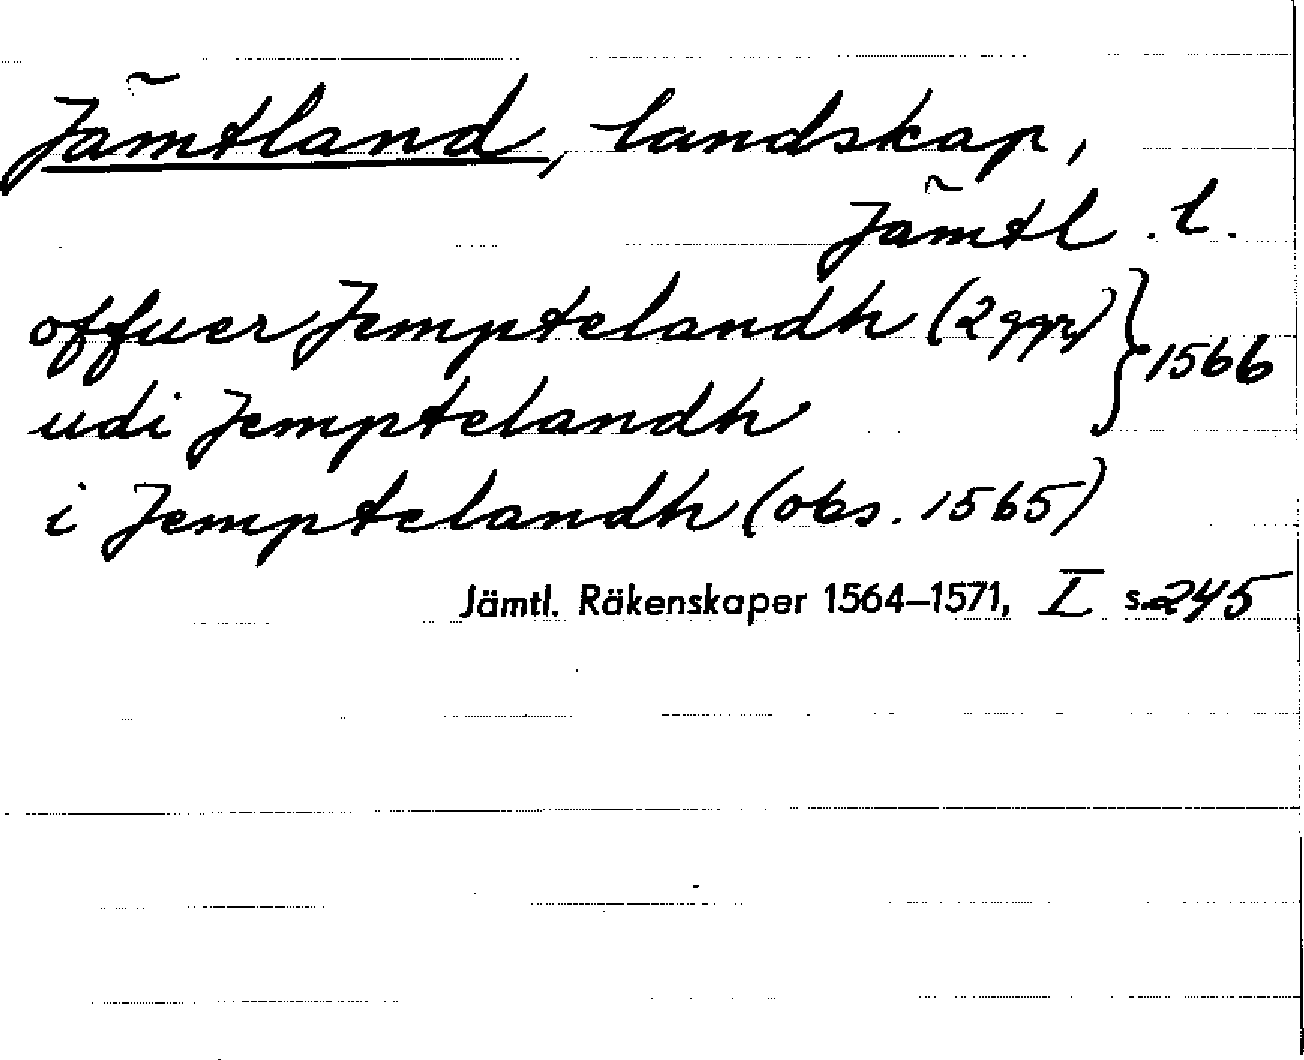 Jämtland, landskap,
Jämtl. l.
offuer Jemptelandh (2 ggr) } 1566
udi Jemptelandh
i Jemptelandh (obs. 1565)
Jämtl. Räkenskaper 1564–1571, I s. 245